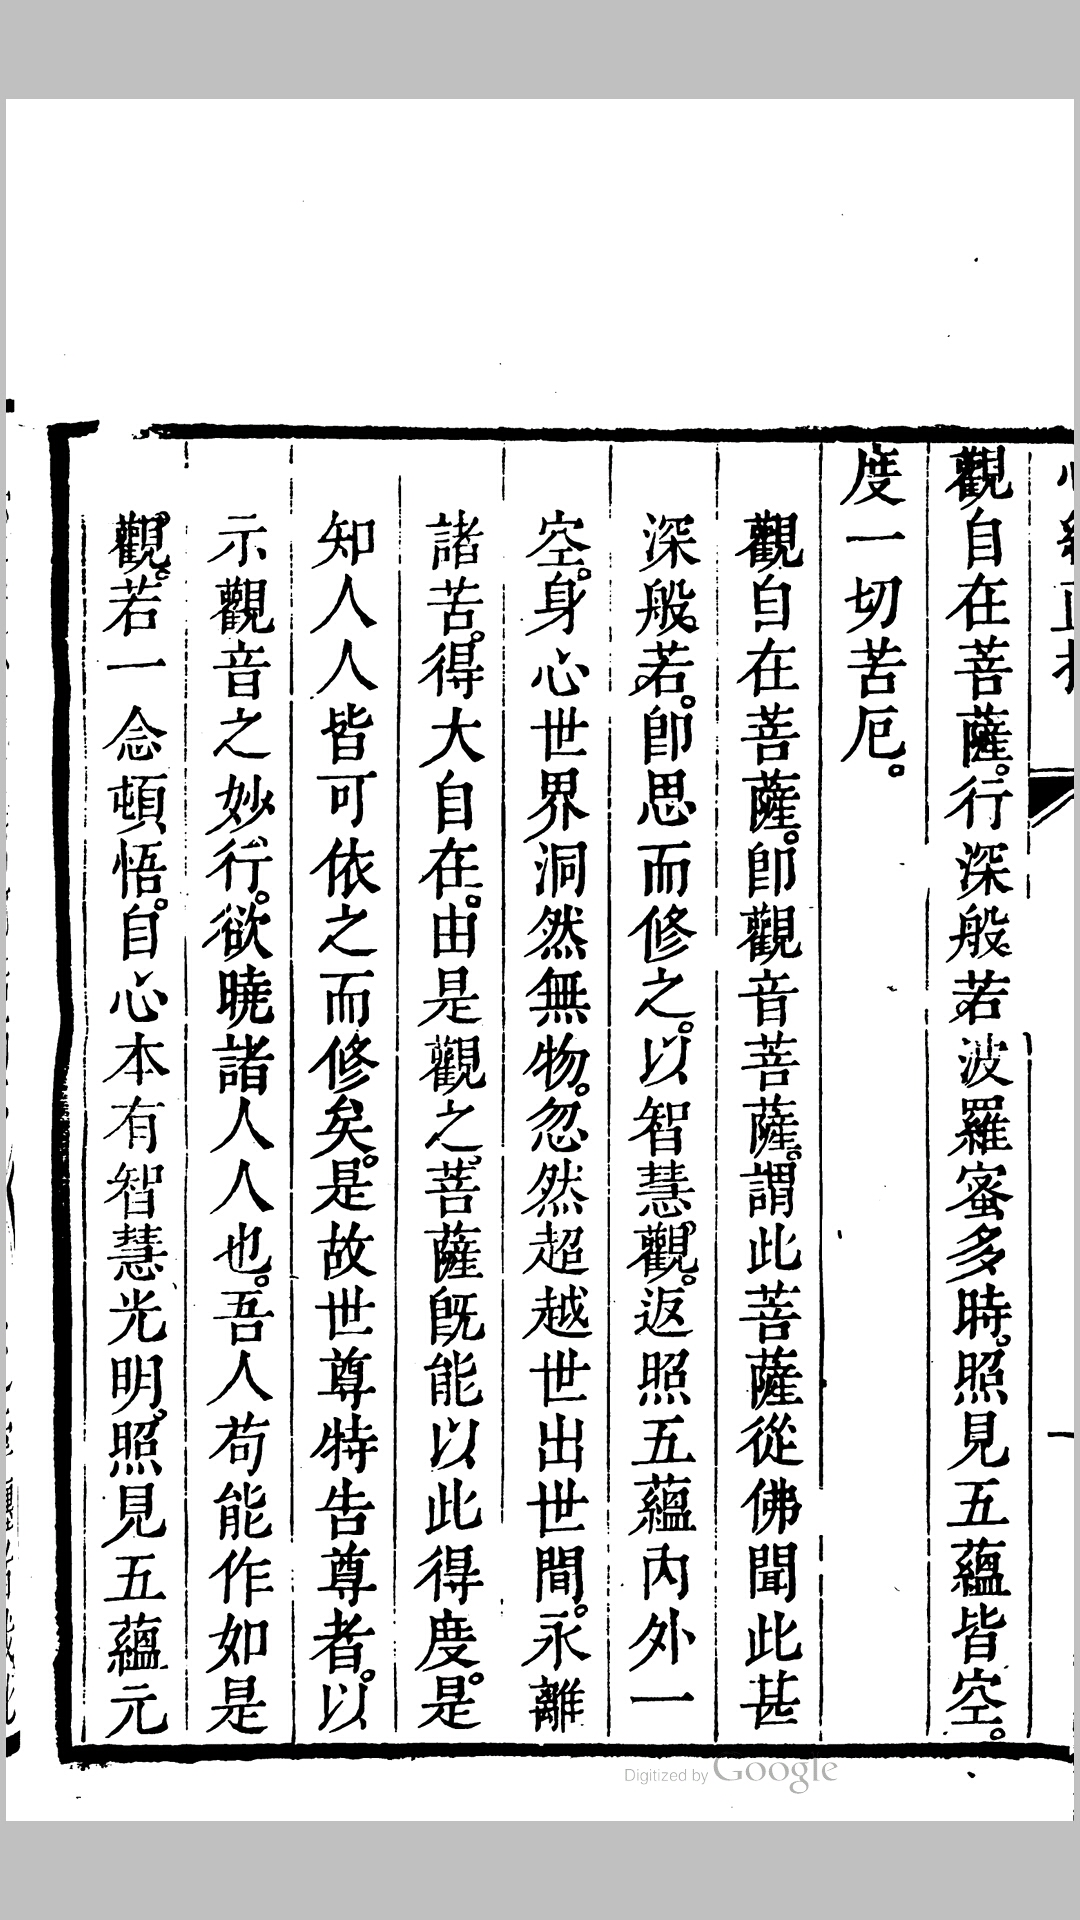 觀自在菩薩。行深般若波羅蜜多時。照見五蘊皆空。
度一切苦厄。
觀自在菩薩。卽觀音菩薩。謂此菩薩從佛聞此甚
深般若。卽思而修之。以智慧觀。返照五蘊內外一
空。身心世界洞然無物。忽然超越世出世間。永離
諸苦。得大自在。由是觀之。菩薩旣能以此得度。是
知人人皆可依之而修矣。是故世尊特告尊者。以
示觀音之妙行。欲曉諸人人也。吾人苟能作如是
觀。若一念頓悟。自心本有智慧光明。照見五蘊元
Digitized by Google